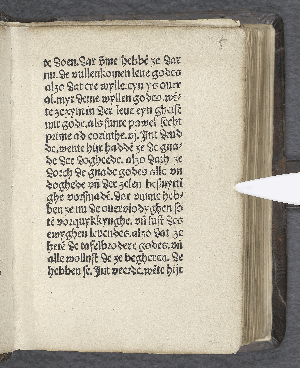 te doen. dar v̄me hebbē ze dar
nu. de vullenkomen leue godes
alzo dat ere wylle. eyn ys ouer
al. myt deme wyllen godes. wē
te ze eyn in der leue eyn gheist
mit gode. als sunte pawel secht
prime ad corinthe. vj. Int drud
de, wente hijr hadde ze de gna
de der doghede. alzo dath ze
dorch de gnade godes alle vn̄
doghede vn̄ der zelen
ghe vorsmadē. dar vmme heb
ben ze nu de ouervlodyghen so
te vorquykkynghe. vn̄ lust des
ewyghen leuendes. alzo dat ze
hetē de tafelbrodere godes. vn̄
alle wollust de ze begheren. de
hebben se. Int veerde. wēte hijr